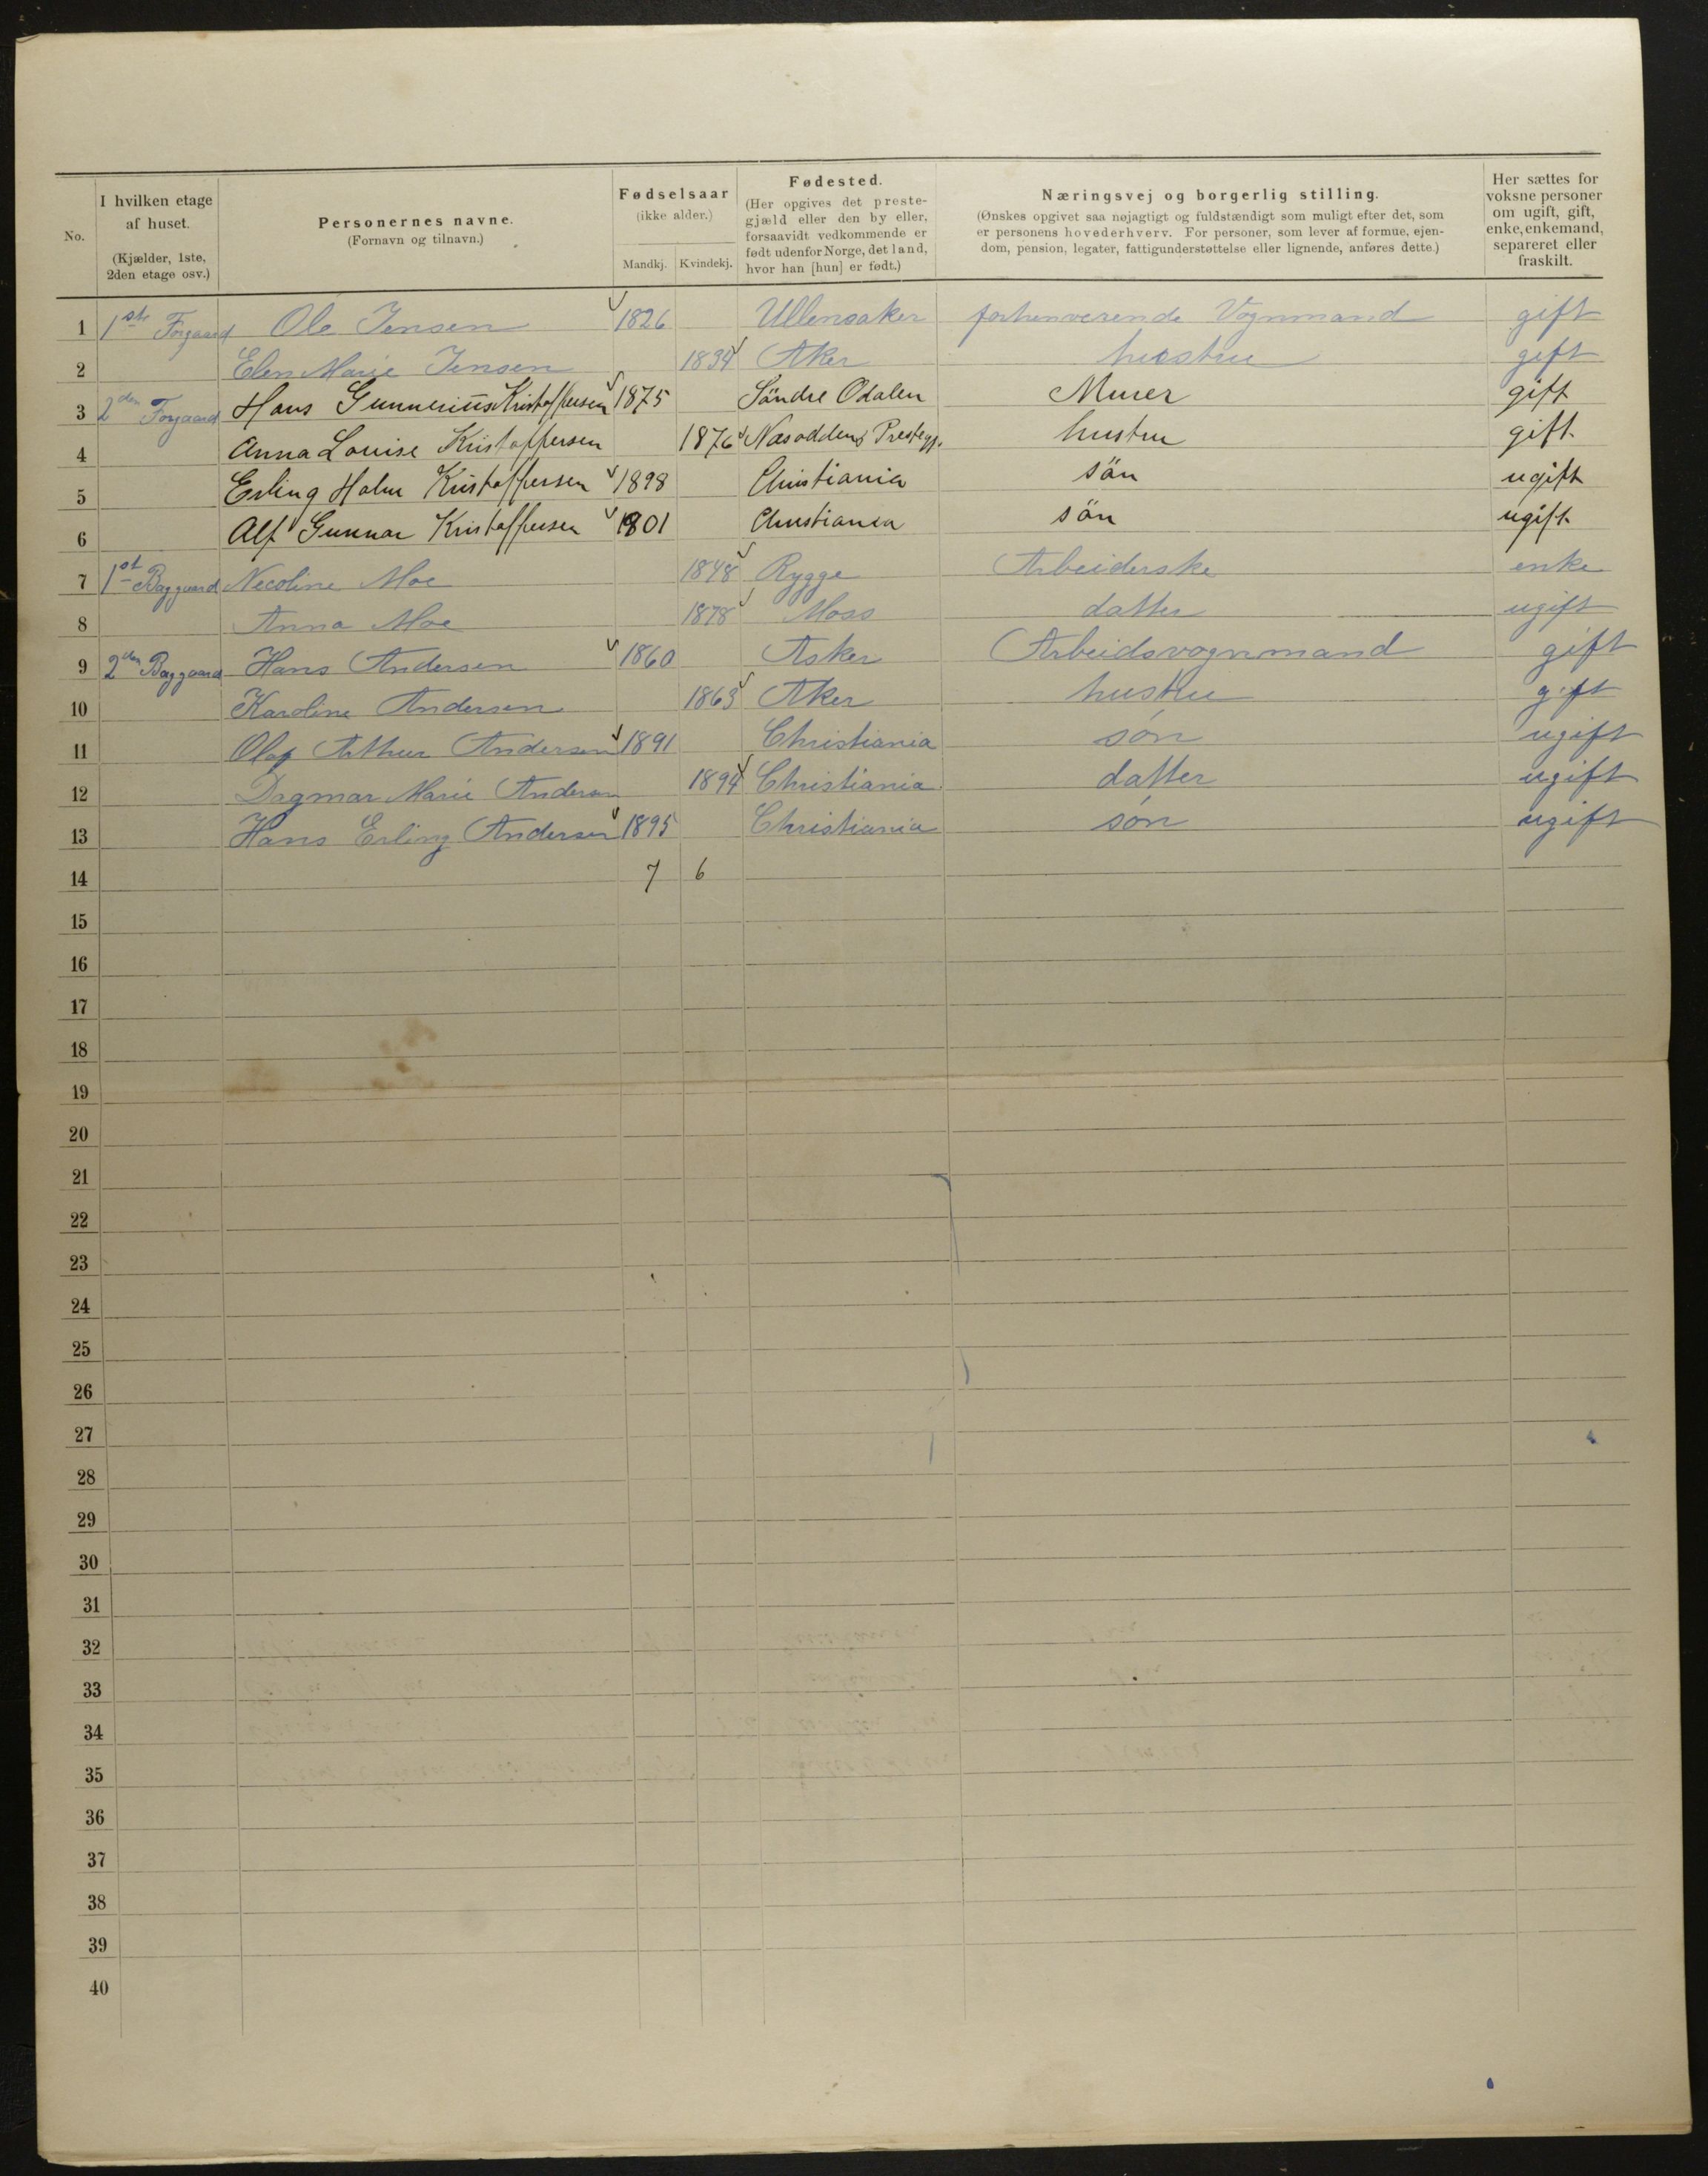 No.
I hvilken etage af huset.
(Kjælder, 1ste, 2den etage osv.)
Personernes navne.
(Fornavn og tilnavn.)
Fødselsaar
(ikke alder.)
Mandkj. Kvindekj.
Fødested.
(Her opgives det prestegjæld eller den by eller, forsaavidt vedkommende er født udenfor Norge, det land, hvor han [hun] er født.)
Næringsvej og borgerlig stilling.
(Ønskes opgivet saa nøjagtigt og fuldstændigt som muligt efter det, som er personens hovederhverv. For personer, som lever af formue, ejendom, pension, legater, fattigunderstøttelse eller lignende, anføres dette.)
Her sættes for voksne personer om ugift, gift, enke, enkemand, separeret eller fraskilt.
1 1ste Forgaard Ole Jensen 1826 Ullensaker forhenverende Vognmand gift
2 Elen Marie Jensen 1834 Aker hustru gift
3 2den Forgaard Hans Gunnerius Kristoffersen 1875 Søndre Odalen Murer gift
4 Anna Louise Kristoffersen 1876 Næsoddens Prestegj. hustru gift
5 Erling Holm Kristoffersen 1898 Christiania sön ugift
6 Alf Gunnar Kristoffersen 1801 Christiania sön ugift
7 1st Baggaard Necoline Moe 1848 Rygge Arbeiderske enke
8 Anna Moe 1878 Moss datter ugift
9 2den Baggaard Hans Andersen 1860 Asker Arbeidsvognmand gift
10 Karoline Andersen 1863 Aker hustru gift
11 Olaf Arthur Andersen 1891 Christiania søn ugift
12 Dagmar Marie Andersen 1894 Christiania datter ugift
13 Hans Erling Andersen 1895 Christiania søn ugift
14 7 6
15
16
17
18
19
20
21
22
23
24
25
26
27
28
29
30
31
32
33
34
35
36
37
38
39
40